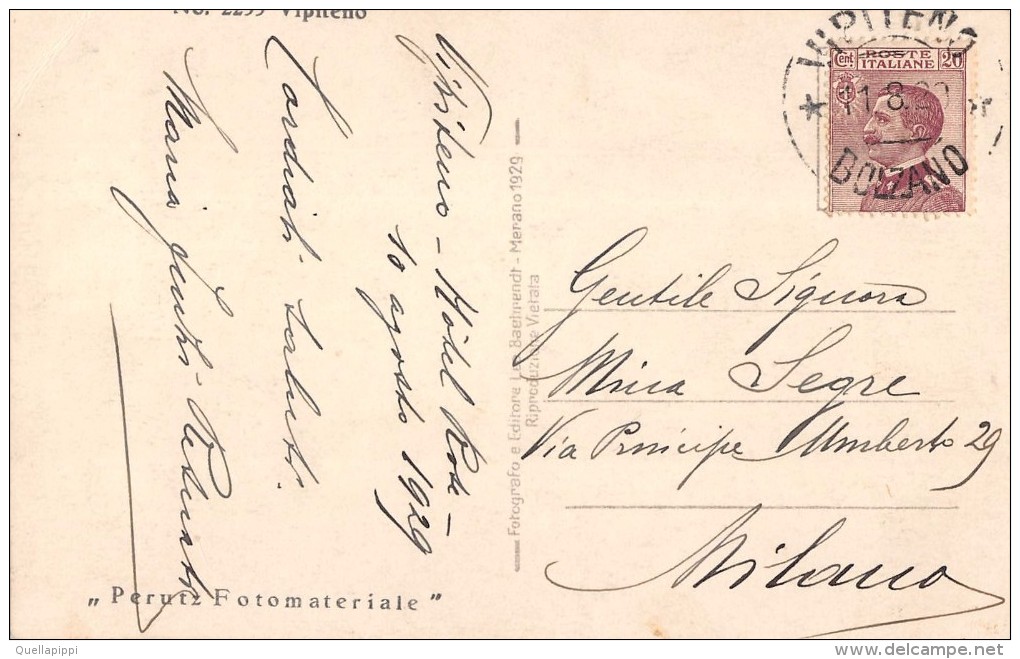 No. 2299 Vipiteno
Vipiteno - Hôtel Rose -
10 agosto 1929
Cordiali saluti.
Maria
Fotografo e Editore Leo Baehrendt - Merano 1929
Riproduzione Vietata
„Perutz Fotomateriale"
VIPITENO
11.8.29
BOLZANO
POSTE
Cent. ITALIANE 20
Gentile Signora
Mica Segre
Via Principe Umberto 29
Milano
Quellapippi
delcampe.net